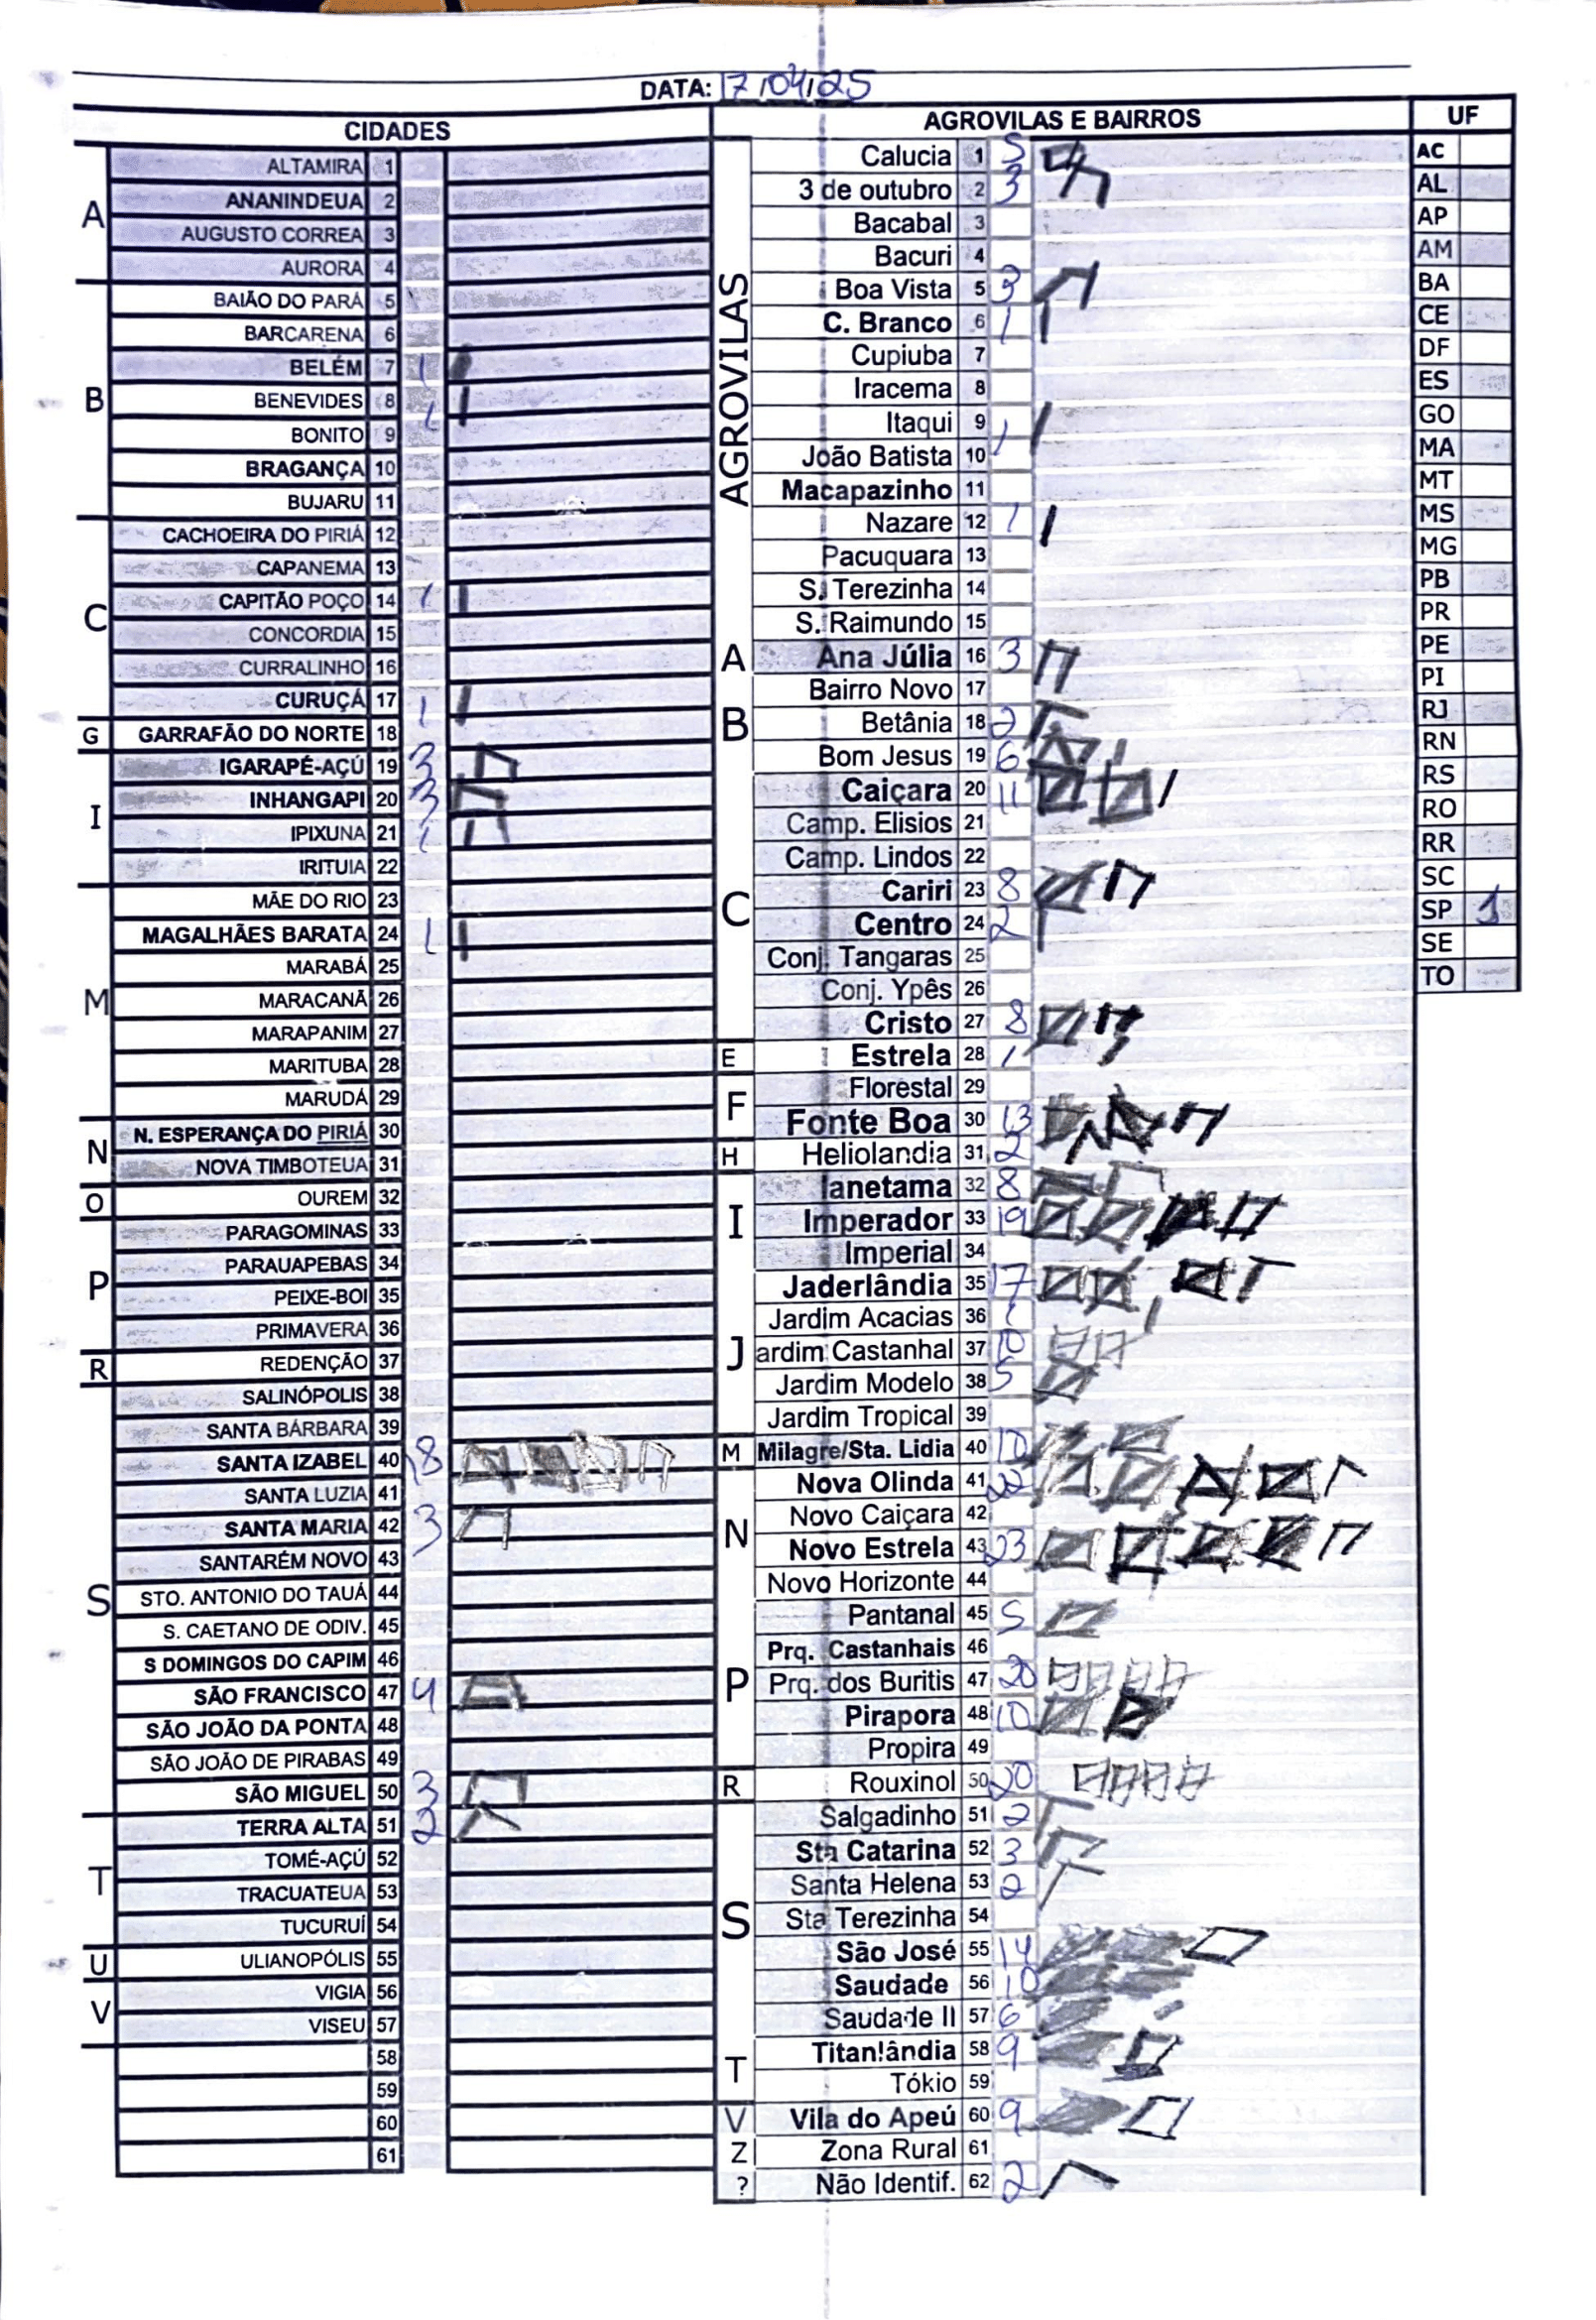 DATA: 17/04/25
CIDADES
A
ALTAMIRA 1
ANANINDEUA 2
AUGUSTO CORREA 3
AURORA 4
B
BAIÃO DO PARÁ 5
BARCARENA 6
BELÉM 7 1
BENEVIDES 8 1
BONITO 9
BRAGANÇA 10
BUJARU 11
C
CACHOEIRA DO PIRIÁ 12
CAPANEMA 13
CAPITÃO POÇO 14 1
CONCORDIA 15
CURRALINHO 16
CURUÇÁ 17 1
G
GARRAFÃO DO NORTE 18
I
IGARAPÉ-AÇÚ 19 3
INHANGAPI 20 3
IPIXUNA 21 1
IRITUIA 22
M
MÃE DO RIO 23
MAGALHÃES BARATA 24 1
MARABÁ 25
MARACANÃ 26
MARAPANIM 27
MARITUBA 28
MARUDÁ 29
N
N. ESPERANÇA DO PIRIÁ 30
NOVA TIMBOTEUA 31
O
OUREM 32
P
PARAGOMINAS 33
PARAUAPEBAS 34
PEIXE-BOI 35
PRIMAVERA 36
R
REDENÇÃO 37
S
SALINÓPOLIS 38
SANTA BÁRBARA 39
SANTA IZABEL 40 18
SANTA LUZIA 41
SANTA MARIA 42 3
SANTARÉM NOVO 43
STO. ANTONIO DO TAUÁ 44
S. CAETANO DE ODIV. 45
S DOMINGOS DO CAPIM 46
SÃO FRANCISCO 47 4
SÃO JOÃO DA PONTA 48
SÃO JOÃO DE PIRABAS 49
SÃO MIGUEL 50 3
T
TERRA ALTA 51 2
TOMÉ-AÇÚ 52
TRACUATEUA 53
TUCURUÍ 54
U
ULIANOPÓLIS 55
V
VIGIA 56
VISEU 57
58
59
60
61
AGROVILAS E BAIRROS
AGROVILAS
Calucia 1 5
3 de outubro 2 3
Bacabal 3
Bacuri 4
Boa Vista 5 3
C. Branco 6 1
Cupiuba 7
Iracema 8
Itaqui 9 1
João Batista 10
Macapazinho 11
Nazare 12 1
Pacuquara 13
S. Terezinha 14
S. Raimundo 15
A
Ana Júlia 16 3
B
Bairro Novo 17
Betânia 18 2
Bom Jesus 19 6
C
Caiçara 20 11
Camp. Elisios 21
Camp. Lindos 22
Cariri 23 8
Centro 24 2
Conj. Tangaras 25
Conj. Ypês 26
Cristo 27 8
E
Estrela 28 1
F
Florestal 29
Fonte Boa 30 13
H
Heliolandia 31 2
I
Ianetama 32 8
Imperador 33 19
Imperial 34
J
Jaderlândia 35 17
Jardim Acacias 36 1
ardim Castanhal 37 10
Jardim Modelo 38 5
Jardim Tropical 39
M
Milagre/Sta. Lidia 40 10
N
Nova Olinda 41 22
Novo Caiçara 42
Novo Estrela 43 23
Novo Horizonte 44
P
Pantanal 45 5
Prq. Castanhais 46
Prq. dos Buritis 47 20
Pirapora 48 10
Propira 49
R
Rouxinol 50 20
S
Salgadinho 51 2
Sta Catarina 52 3
Santa Helena 53 2
Sta Terezinha 54
São José 55 14
Saudade 56 10
Saudade II 57 6
T
Titanlândia 58 9
Tókio 59
V
Vila do Apeú 60 9
Z
Zona Rural 61
?
Não Identif. 62 2
UF
AC
AL
AP
AM
BA
CE
DF
ES
GO
MA
MT
MS
MG
PB
PR
PE
PI
RJ
RN
RS
RO
RR
SC
SP 1
SE
TO